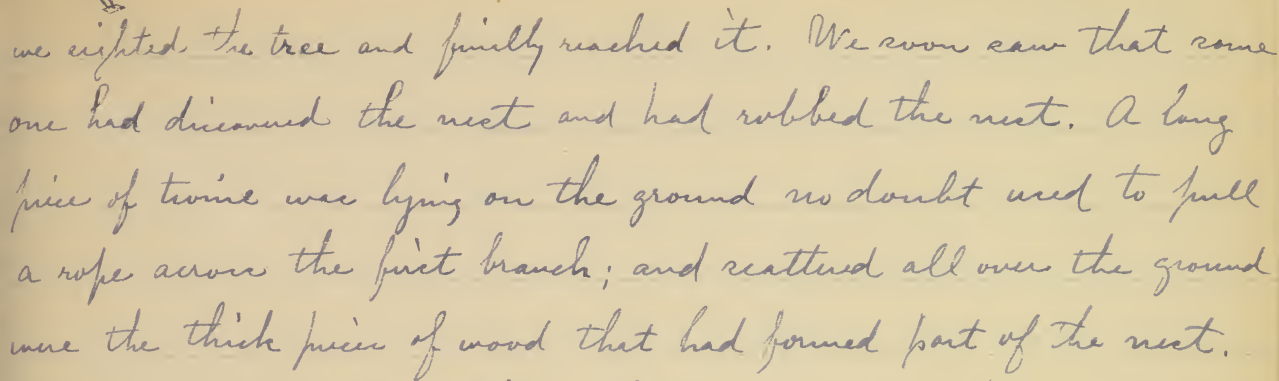 we sighted the tree and finally reached it. We soon saw that some
one had discovered the nest and had robbed the nest. A long
piece of twine was lying on the ground no doubt used to pull
a rope across the first branch; and scattered all over the ground
were the thick pieces of wood that had formed part of the nest.